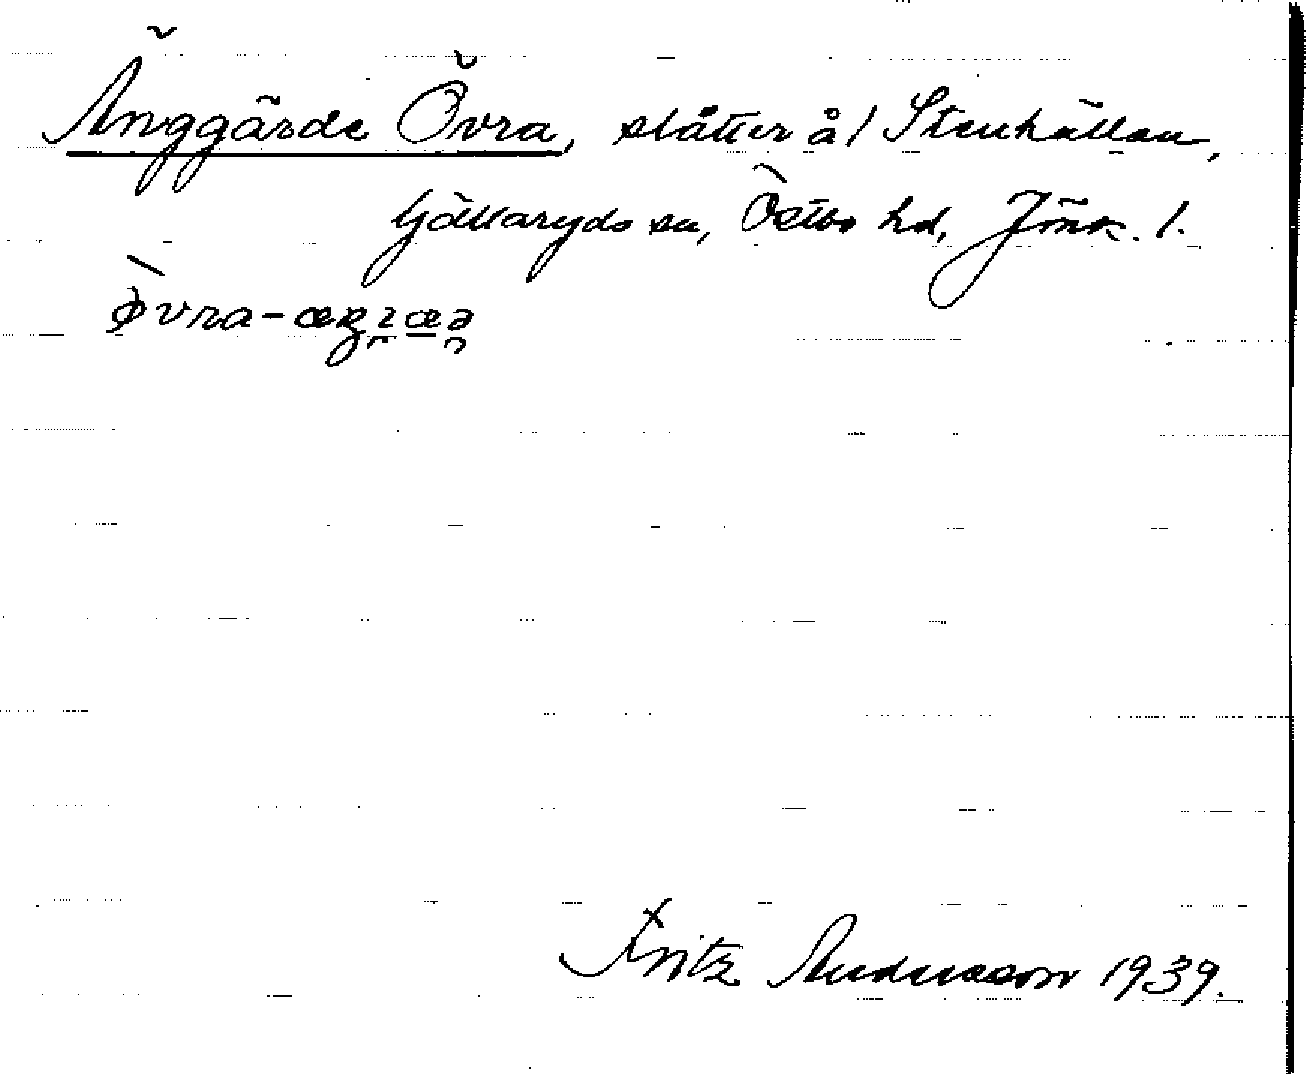 Änggärde Övra, slåtter å/ Stenhällan,
Gällaryds sn, Östbo hd, Jönk. l.
Fritz Andersson 1939.